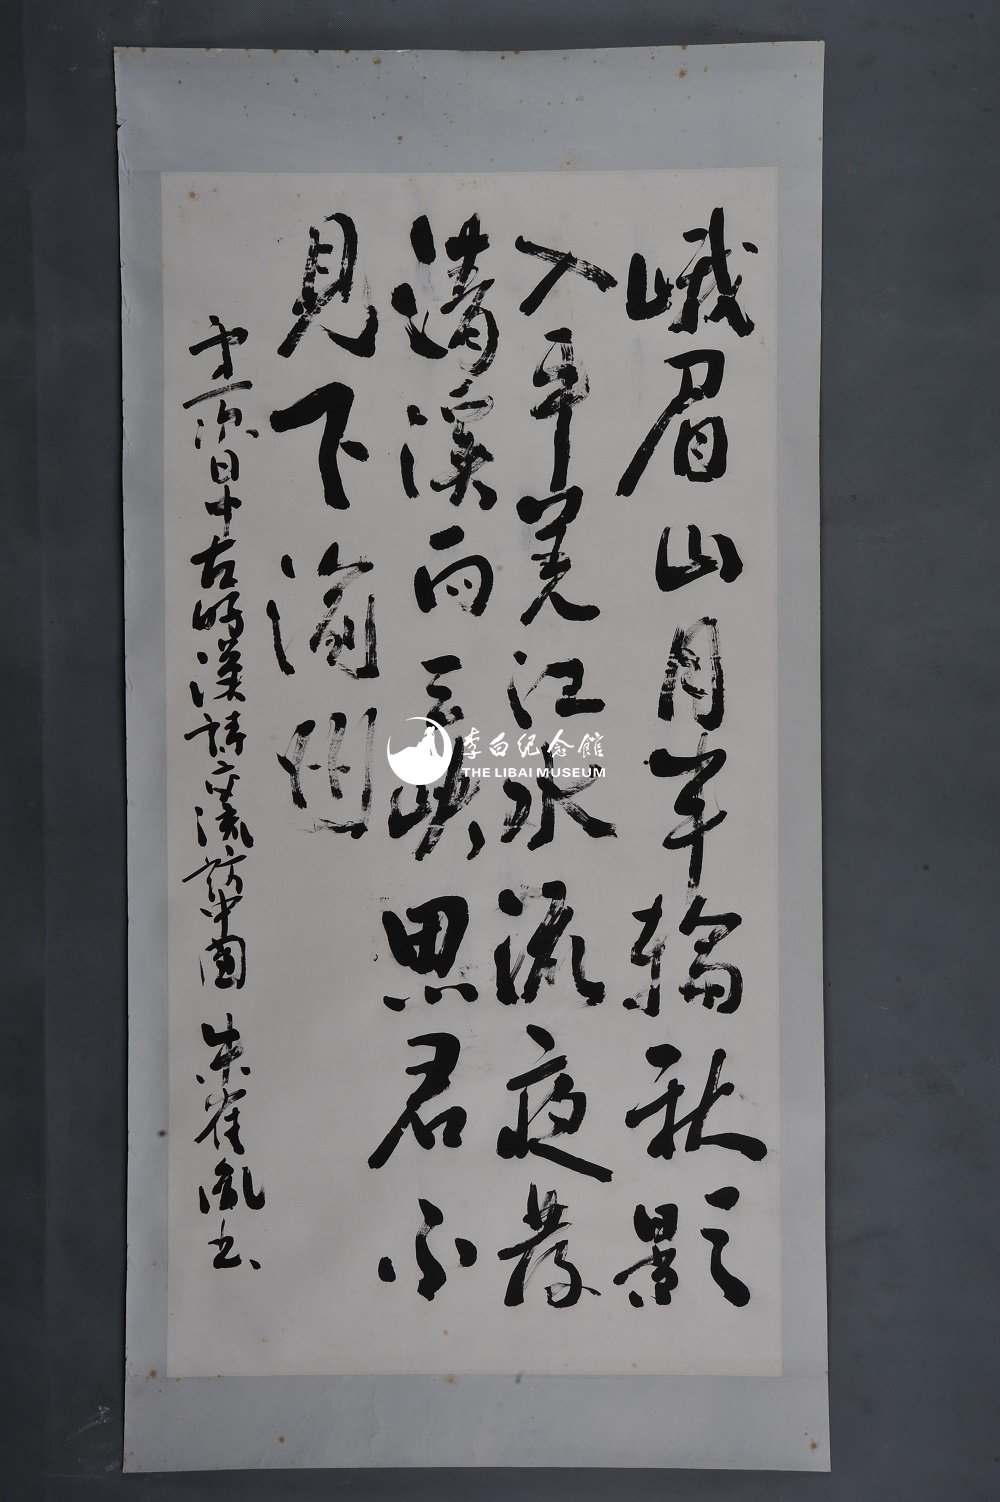 峨眉山月半輪秋影
入平羌江水流夜發
清溪向三峡思君不
見下渝州
第一次日中古時漢詩交流訪中團 朱雀胤书
李白纪念館
THE LIBAI MUSEUM